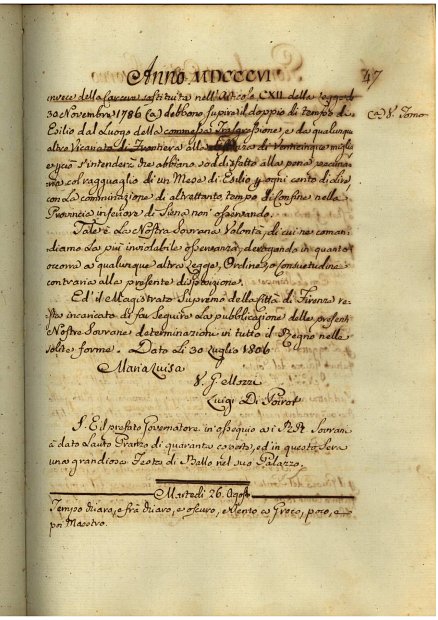 Anno MDCCCVI
47
invece della Carcere sostituita nell'Articolo CXII della Legge di
30 Novembre 1786 (a) debbono supire il doppio di tempo di
(a) V. Tomo
Esilio dal Luogo della commessa Trasgressione, e da qualunque
altro Vicariato di Frontiera alla di Venticinque miglia
e ciò s'intenderà che abbiano soddisfatto alla pena pecunia
ria col ragguaglio di un Mese di Esilio p ogni cento di Lire
con la commutazione di altrettanto tempo di Confine nella
Provincia inferiore di Siena non osservando.
Tale è la Nostra Sovrana Volontà, di cui ne coman
diamo la più inviolabile osservanza, derogando in quanto
occorra a qualunque altra Legge, Ordine, o Consuetudine
contraria alle presenti disposizioni.
Ed il Magistrato Supremo della Città di Firenze re
sta incaricato di far seguire la pubblicazione delle presenti
Nostre Sovrane determinazioni in tutto il Regno nelle
solite forme. Dato li 30 Luglio 1806
Maria Luisa
V. G. Mozzi
Luigi Di Poirot
S. E. il prefato Governatore in ossequio ai RR. Sovrani
à dato Lauto Pranzo di quaranta coverte, ed in questa Sera
una grandiosa Festa di Ballo nel suo Palazzo.
Martedì 26. Agosto
Tempo chiaro, e frà chiaro, e oscuro, e Vento a Greco, poco, e
poi Maestro.